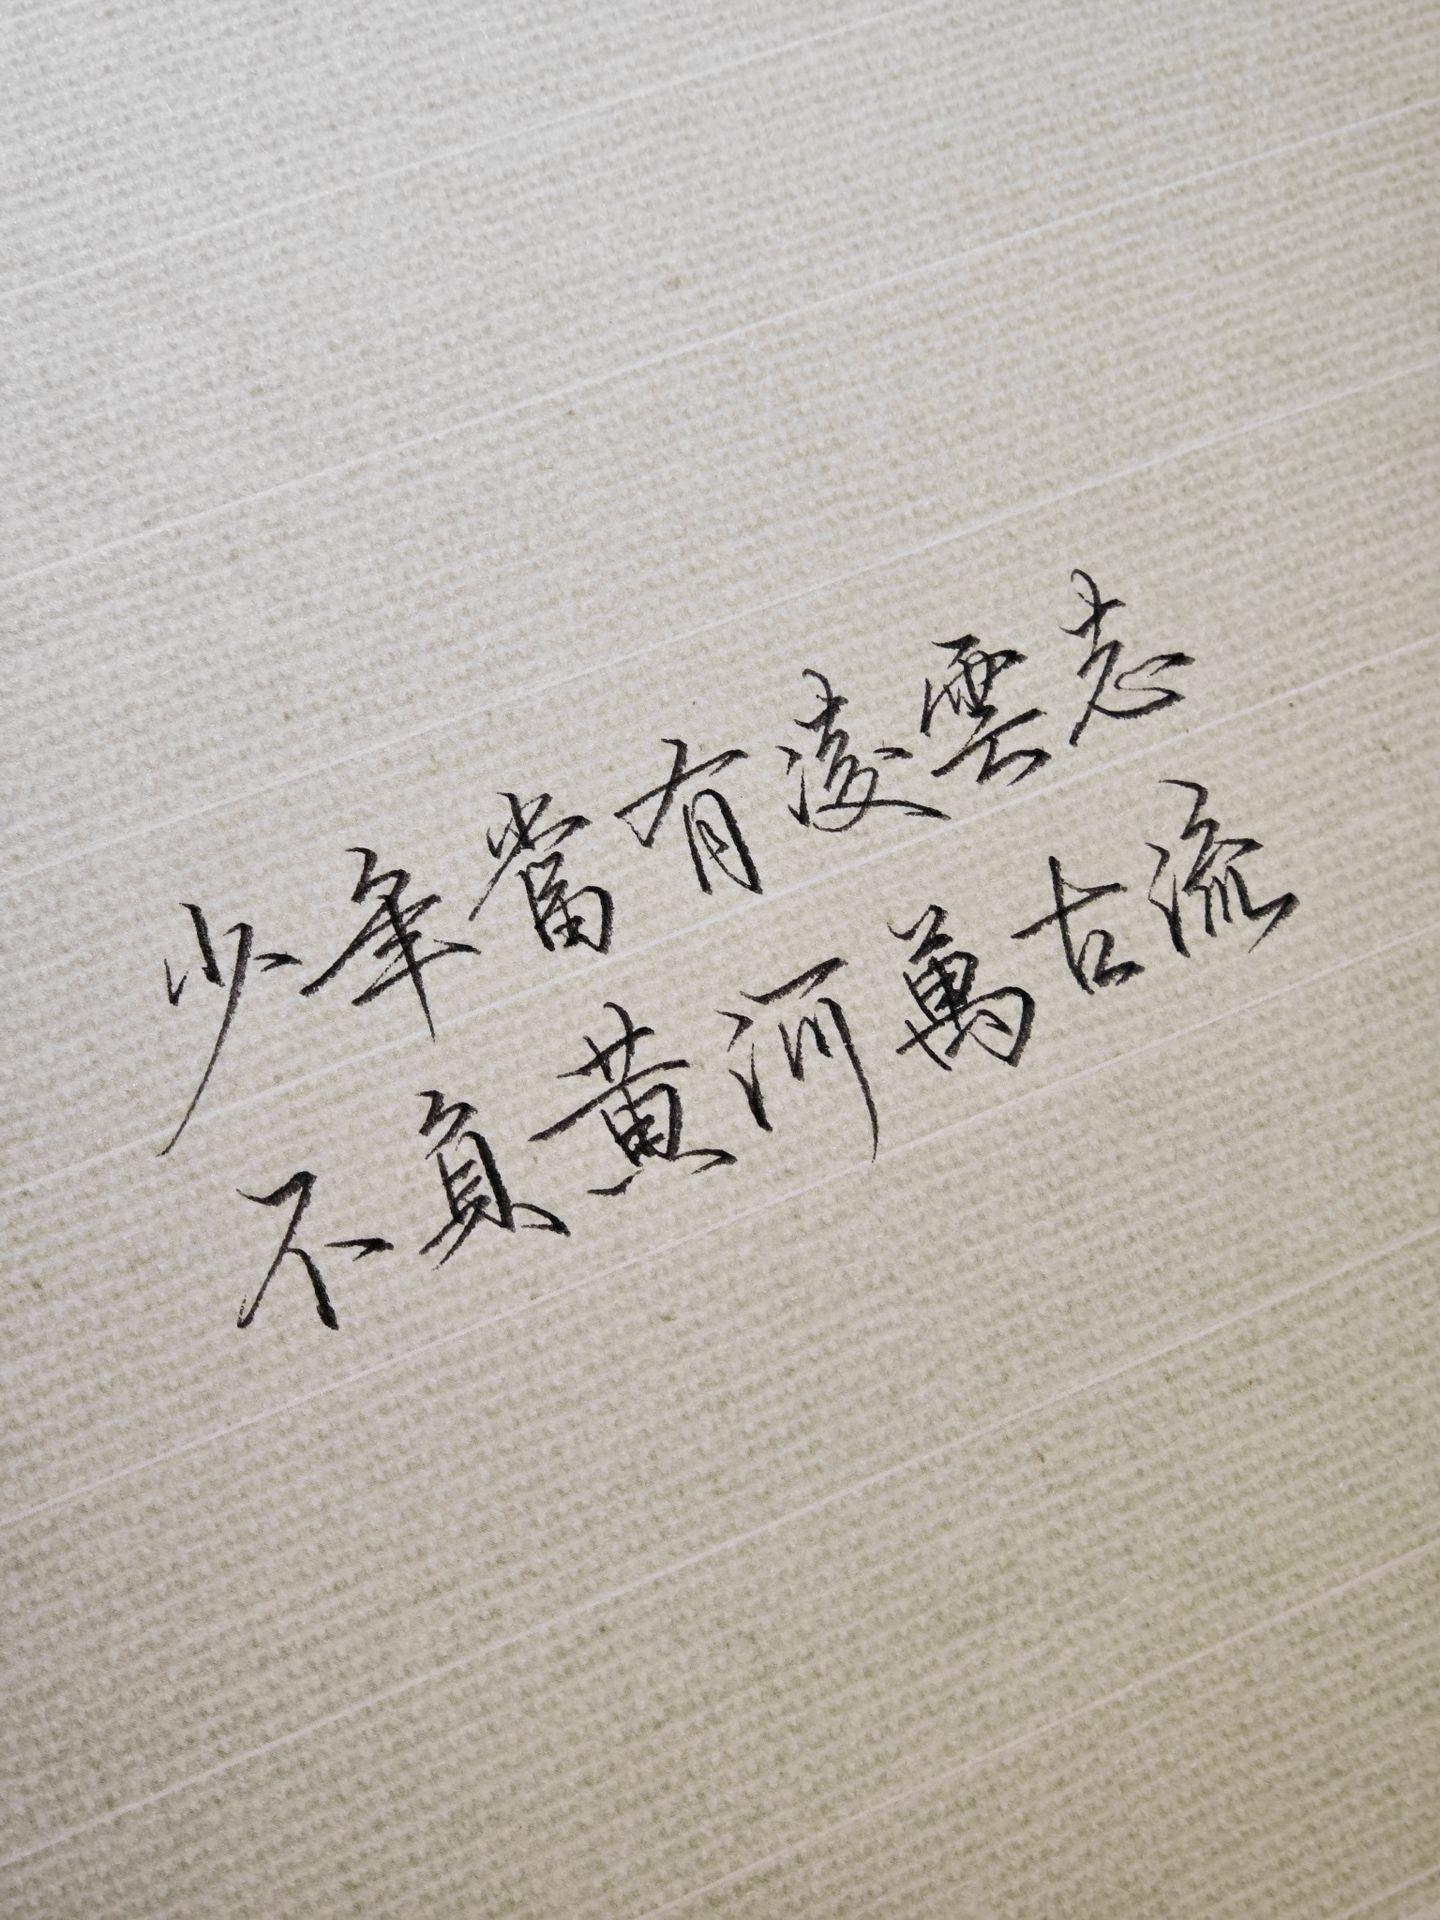 少年當有凌雲志
不負黃河萬古流